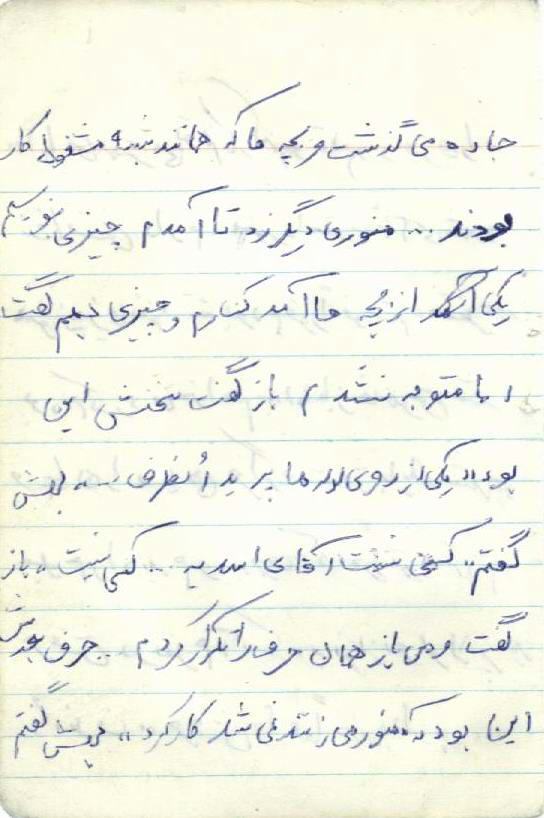 جاده می گذشت و بچه ها که همانند شب مشغول کار
بودند ... منوری دیگر زد تا آمدم چیزی بنویسم
یکی آمد از بچه ها آمد کنارم و چیزی بهم گفت
اما متوجه نشدم باز گفت سخنش این
بود «یکی از روی لوله ها پرید اُنطرف ... بهش
گفتم کسی نیست آقای ... کسی نیست» باز
گفت و من باز همان حرف را تکرار کردم .. حرف بعدش
این بود که منور می زنند نمی شد کار کرد» بهش گفتم